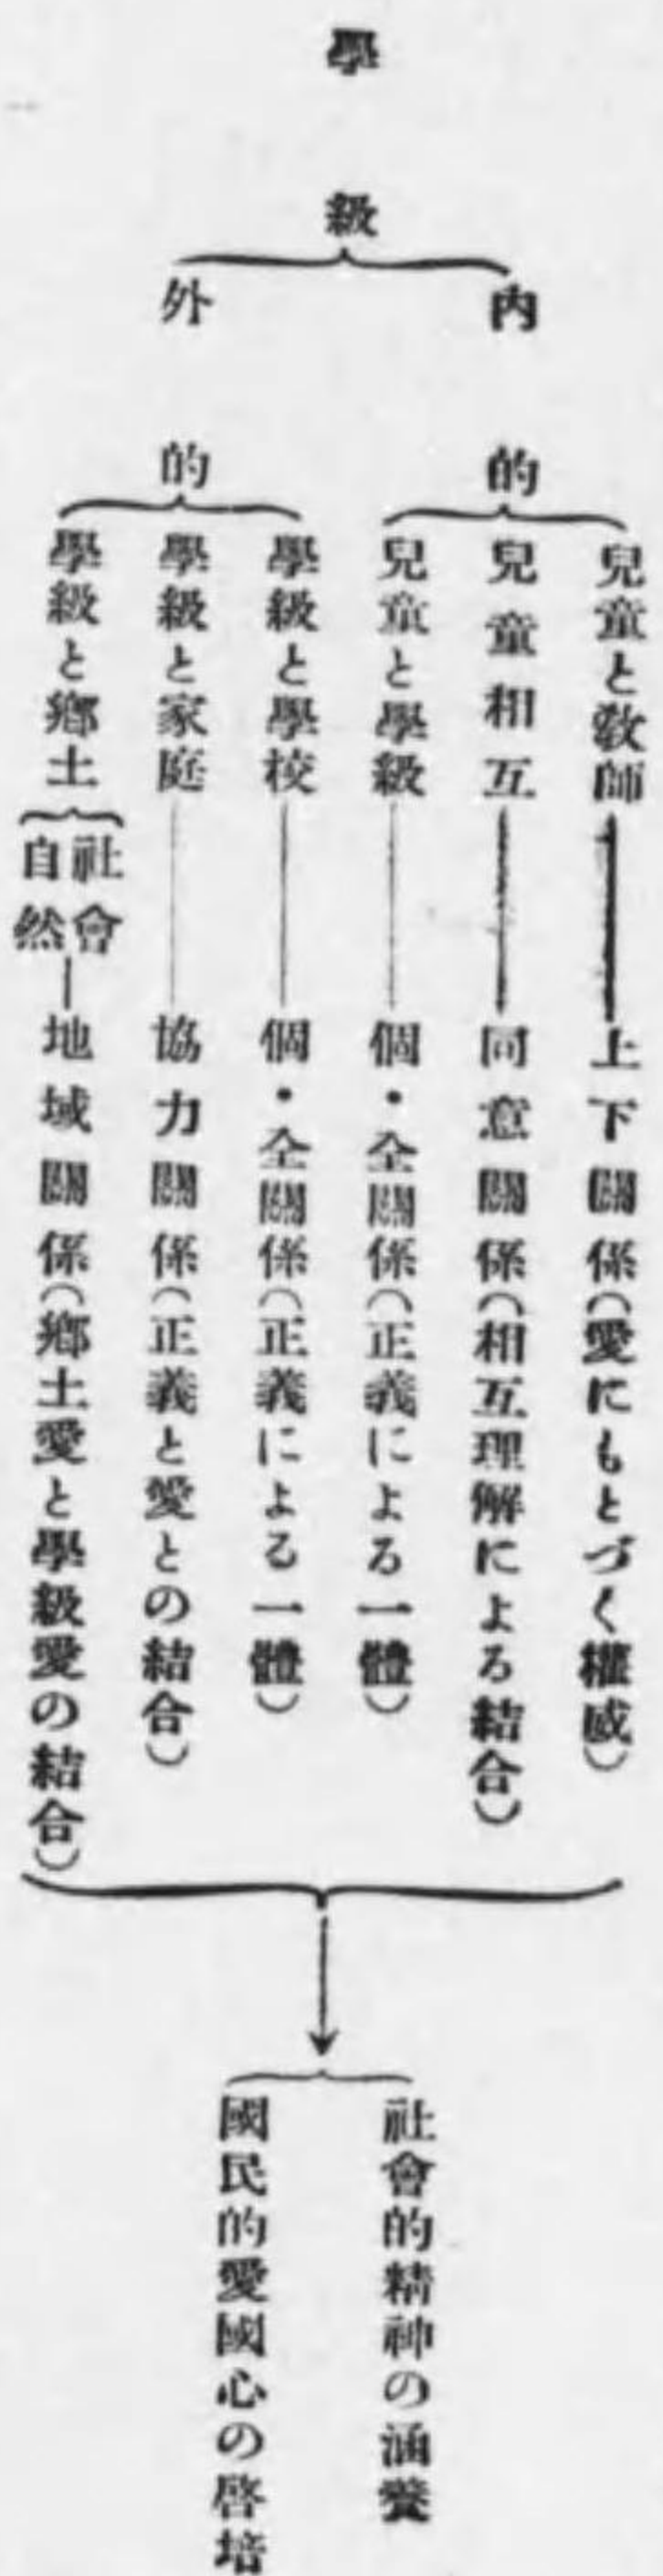 學級
內的
兒童と敎師
上下關係(愛にもとづく權威)
兒童相互
同意關係(相互理解による結合)
兒童と學級
個・全關係(正義による一體)
外的
學級と學校
個・全關係(正義による一體)
學級と家庭
協力關係(正義と愛との結合)
學級と鄕土
社會
自然
地域關係(鄕土愛と學級愛の結合)
社會的精神の涵養
國民的愛國心の啓培